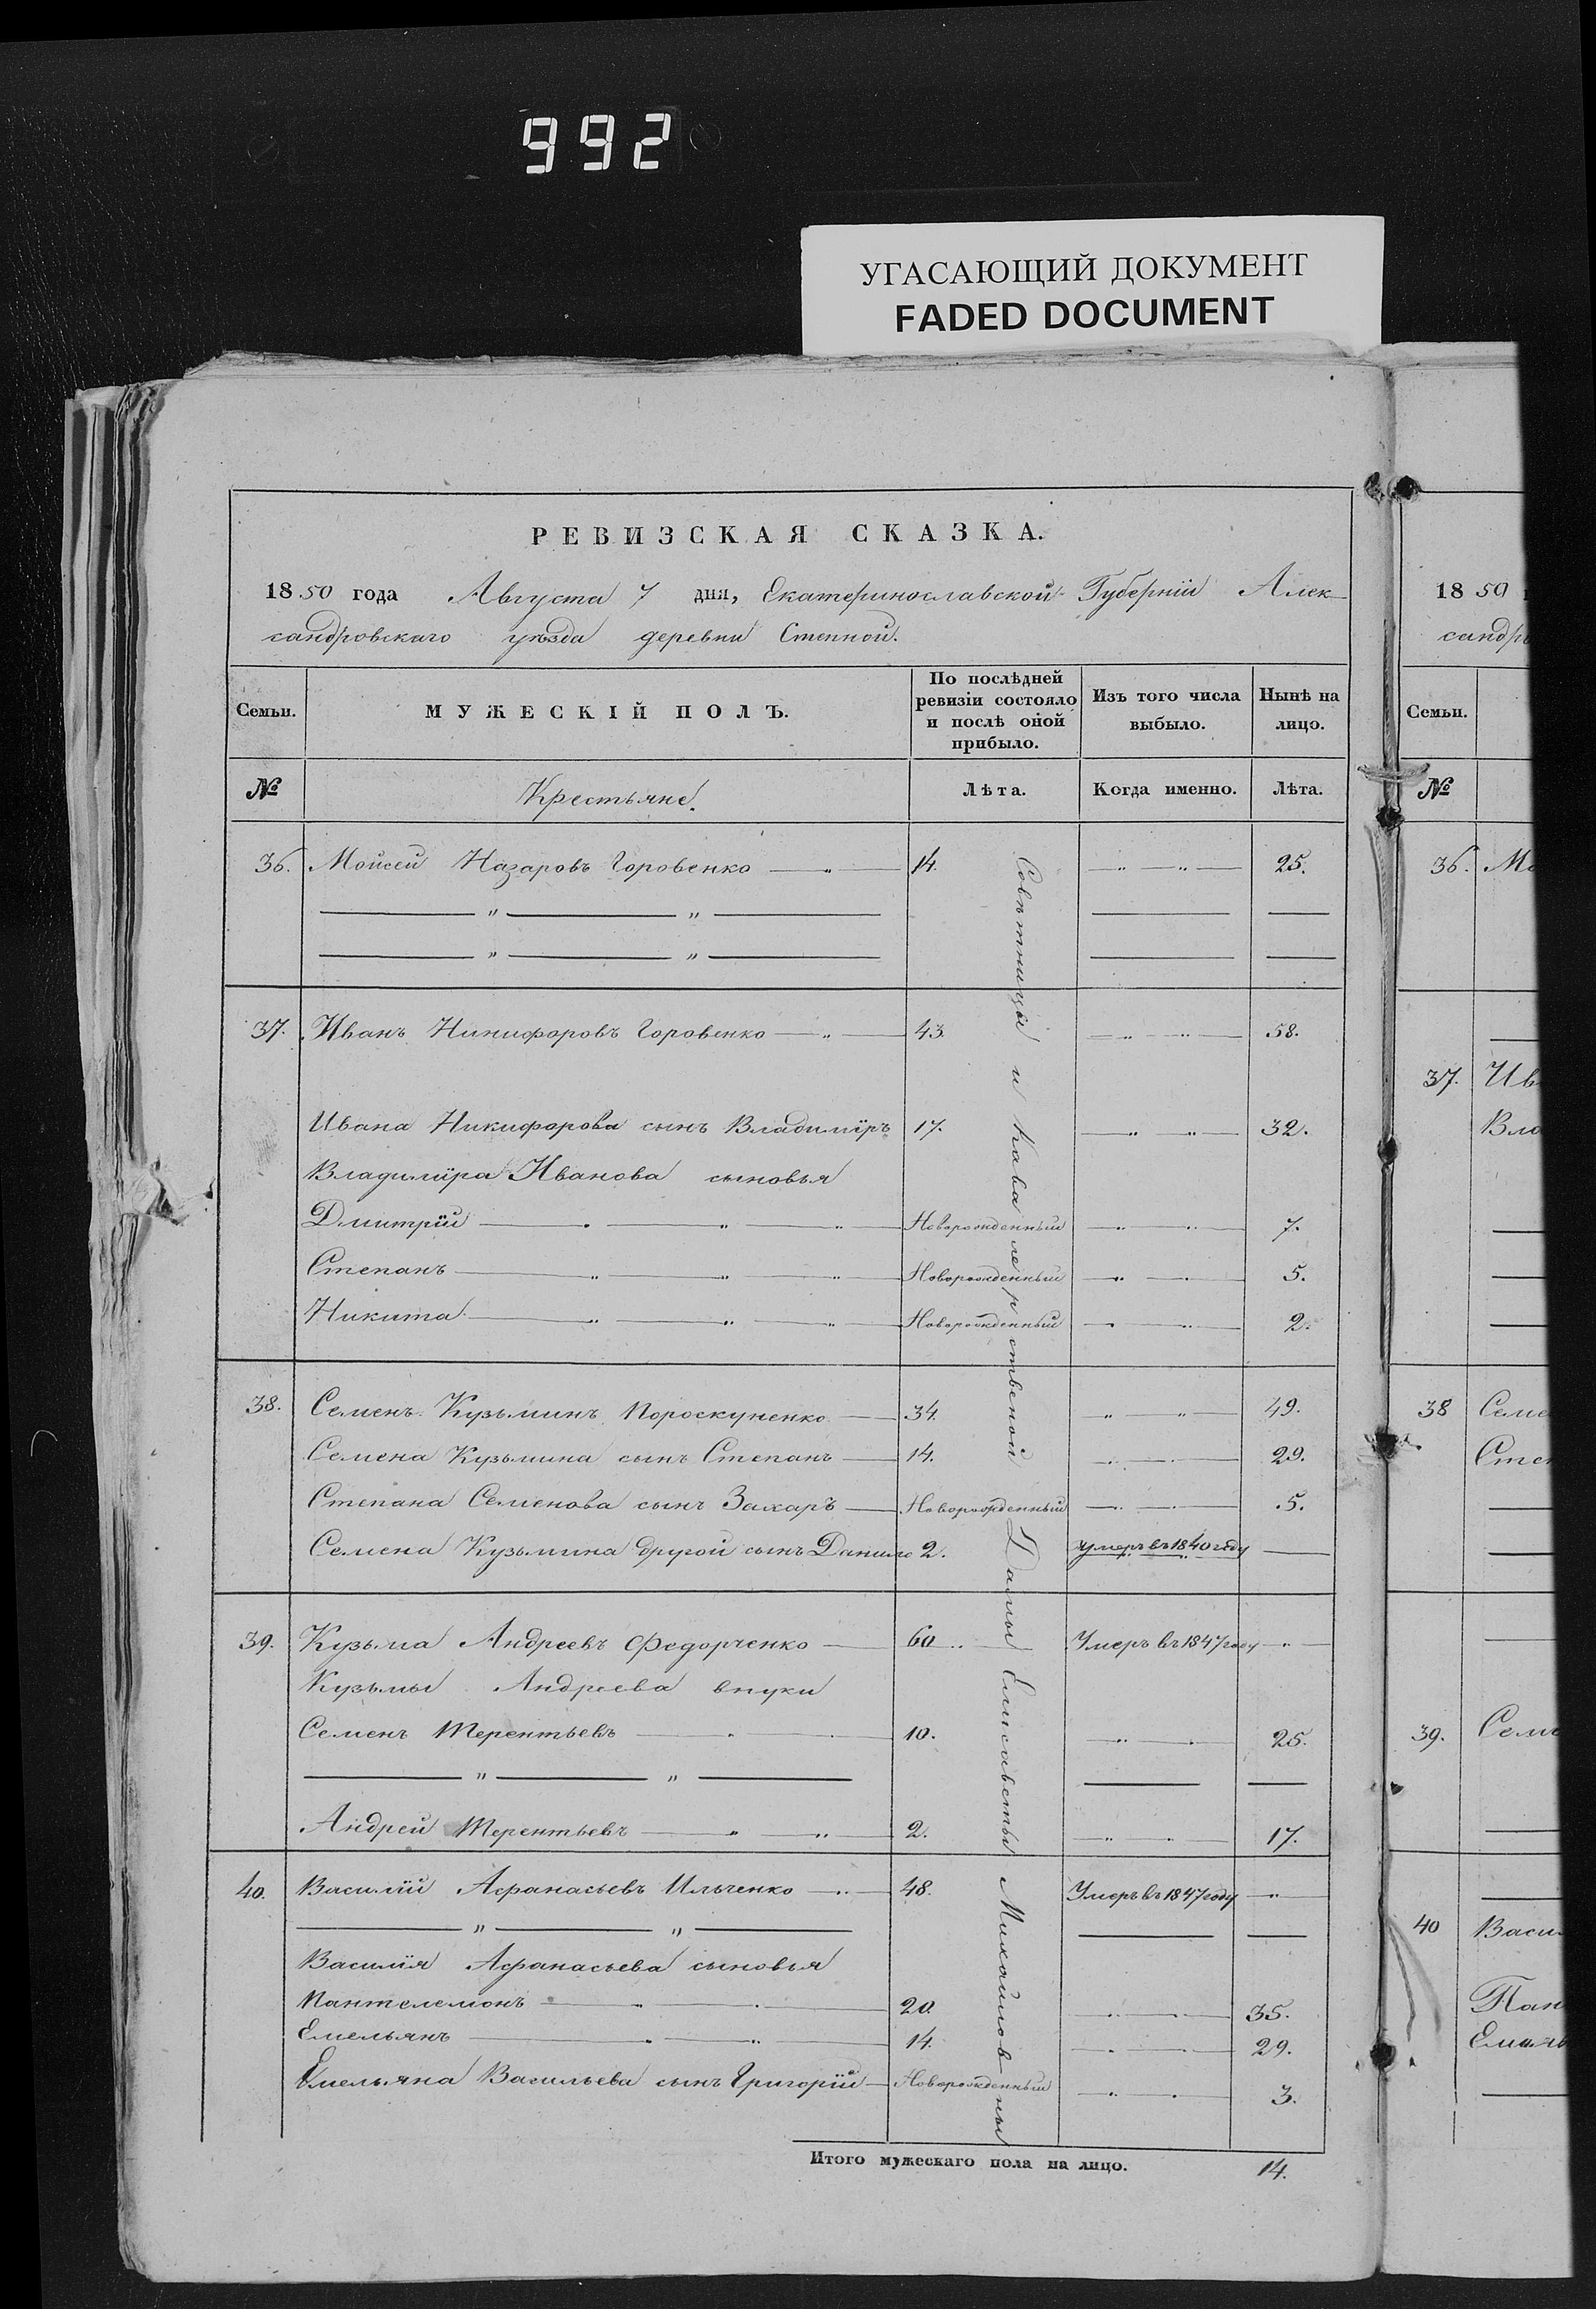 992
УГАСАЮЩИЙ ДОКУМЕНТ
FADED DOCUMENT
РЕВИЗСКАЯ СКАЗКА.
1850 года Августа 7 дня, Екатеринославской Губерніи Алек
сандровскаго уѣзда деревни Степной.
Семьи. МУЖЕСКІЙ ПОЛЪ. По послѣдней ревизіи состояло и послѣ оной прибыло. Изъ того числа выбыло. Нынѣ на лицо.
№ Крестьяне. Лѣта. Когда именно. Лѣта.
36. Мойсей Назаровъ Горовенко 14. 25.
37. Иванъ Никифоровъ Горовенко 43. 58.
Ивана Никифорова сынъ Владиміръ 17. 32.
Владиміра Иванова сыновья
Дмитрій Новорожденный 7.
Степанъ Новорожденный 5.
Никита Новорожденный 2.
38. Семенъ Кузьминъ Пороскуненко 34. 49.
Семена Кузьмина сынъ Степанъ 14. 29.
Степана Семенова сынъ Захаръ Новорожденный 5.
Семена Кузьмина другой сынъ Данило 2. умеръ въ 1840 году
39. Кузьма Андреевъ Федорченко 60 Умеръ въ 1847 году
Кузьмы Андреева внуки
Семенъ Терентьевъ 10. 25.
Андрей Терентьевъ 2. 17.
40. Василій Афанасьевъ Ильченко 48. Умеръ въ 1847 году
Василія Афанасьева сыновья
Пантелемонъ 20. 35.
Емельянъ 14. 29.
Емельяна Васильева сынъ Григорій Новорожденный 3.
Итого мужескаго пола на лицо. 14.
Совѣтницы и Кавалерственной Дамы Елисаветы Михайловны
1850
сандро
Семьи.
№
36. Мо
37. Ив
Вла
38 Семе
Степ
39. Семе
40 Васи
Пан
Емель